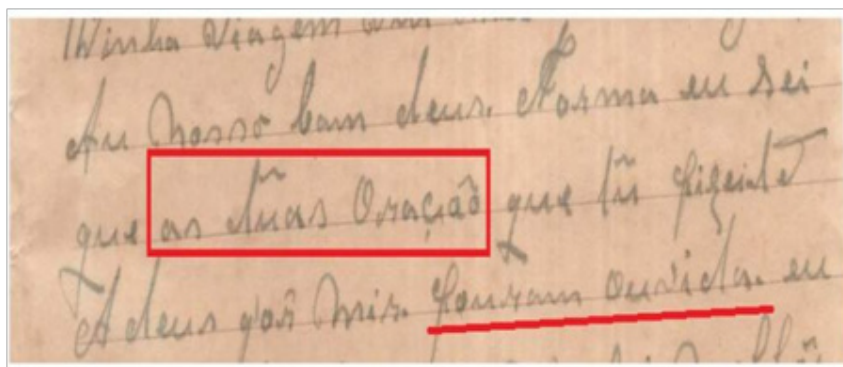 Minha Viagem
Au Nosso bam deus. Norma eu sei
que as tũas Oração que tũ
A deus por mir. fouram ouvida. eu